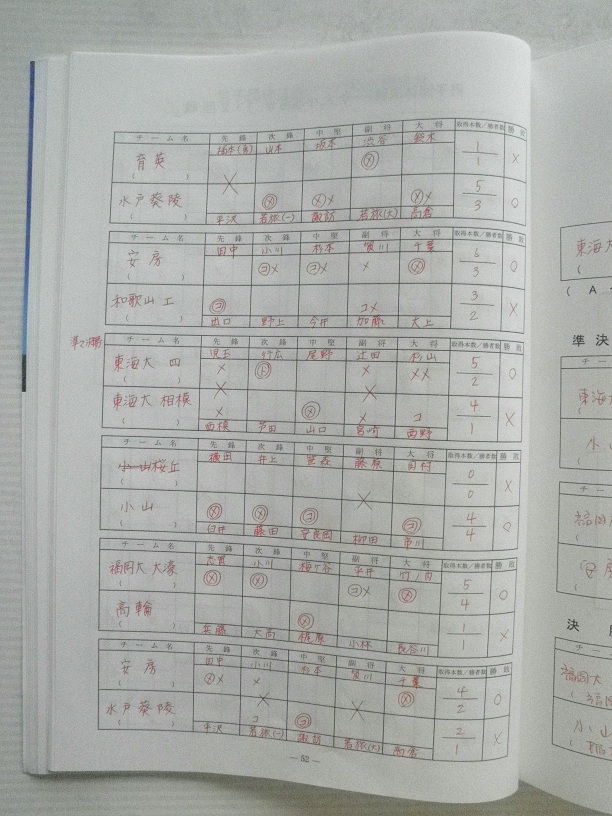 チーム名 先鋒 次鋒 中堅 副将 大将 取得本数/勝者数 勝敗
山本 坂本 渋谷 鈴木
育英 ⓧ 1/1 ×
水戸葵陵 ⓧ ⓧ× ⓧ× 5/3 ○
平沢 若旅(一) 諏訪 若旅(大) 高倉
チーム名 先鋒 次鋒 中堅 副将 大将 取得本数/勝者数 勝敗
田中 小川 杉本 千葉
安房 × ⓧ 6/3 ○
和歌山工 コ× 3/2 ×
出口 野上 今井 加藤
準々決勝
チーム名 先鋒 次鋒 中堅 副将 大将 取得本数/勝者数 勝敗
児玉 竹広 尾野 辻田 杉山
東海大四 × × ×× 5/2 ○
東海大相模 × ⓧ × コ 4/1 ×
西村 芦田 山口 宮崎 西野
チーム名 先鋒 次鋒 中堅 副将 大将 取得本数/勝者数 勝敗
井上 藤原 田村
桜丘 0/0 ×
小山 ⓧ ⓧ 4/4 ○
臼井 藤田 柳田
チーム名 先鋒 次鋒 中堅 副将 大将 取得本数/勝者数 勝敗
小川 梅ヶ谷 平井 竹ノ内
福岡大大濠 ⓧ ⓧ ⓧ 5/4 ○
高輪 ⓧ 1/1 ×
安藤 大高 梶原 小林 長谷川
チーム名 先鋒 次鋒 中堅 副将 大将 取得本数/勝者数 勝敗
田中 小川 杉本 千葉
安房 ⓧ× × ⓧ 4/2 ○
水戸葵陵 コ 2/1 ×
平沢 若旅(一) 諏訪 若旅(大) 高倉
― 52 ―
東海大
( A
準決
東海大
小山
福岡大
安房
決
福岡大
小山